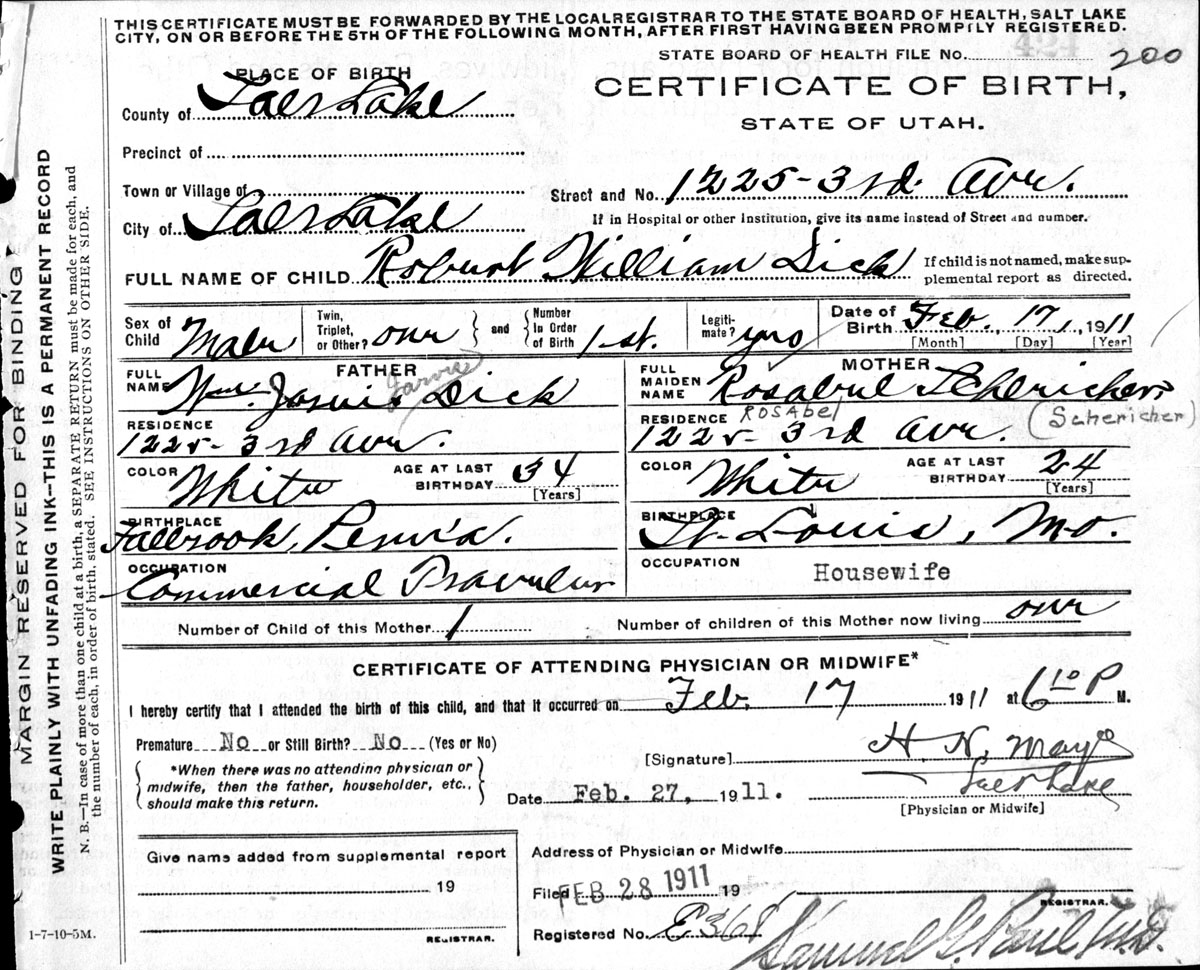 THIS CERTIFICATE MUST BE FORWARDED BY THE LOCAL REGISTRAR TO THE STATE BOARD OF HEALTH, SALT LAKE
CITY, ON OR BEFORE THE 5TH OF THE FOLLOWING MONTH, AFTER FIRST HAVING BEEN PROMPTLY REGISTERED.
STATE BOARD OF HEALTH FILE No. 200
PLACE OF BIRTH
CERTIFICATE OF BIRTH,
County of Salt Lake
STATE OF UTAH.
Precinct of
Town or Village of
Street and No. 1225-3rd. Ave.
City of Salt Lake
If in Hospital or other Institution, give its name instead of Street and number.
FULL NAME OF CHILD Robert William Dick
If child is not named, make sup-
plemental report as directed.
Sex of Child Male
Twin, Triplet, or Other? one
and
Number In Order of Birth 1-st.
Legiti-mate? yes
Date of Birth Feb. 17, 1911
[Month] [Day] [Year]
FATHER
FULL NAME Wm. Jarvis Dick
Jarvis
RESIDENCE
1225- 3rd Ave.
COLOR White
AGE AT LAST BIRTHDAY 34
[Years]
BIRTHPLACE
Fallbrook, Penn'a.
OCCUPATION
Commercial Traveler
MOTHER
FULL MAIDEN NAME Rosabel Schericher
ROSAbel
(Schericher)
RESIDENCE
1225- 3rd Ave.
COLOR White
AGE AT LAST BIRTHDAY 24
[Years]
BIRTHPLACE
St. Louis, Mo.
OCCUPATION
Housewife
Number of Child of this Mother 1
Number of children of this Mother now living one
CERTIFICATE OF ATTENDING PHYSICIAN OR MIDWIFE*
I hereby certify that I attended the birth of this child, and that it occurred on Feb. 17 1911 at 6 10 P M.
Premature No or Still Birth? No (Yes or No)
*When there was no attending physician or
midwife, then the father, householder, etc.,
should make this return.
[Signature] H. N. Mayo
Salt Lake
Date Feb. 27, 1911.
[Physician or Midwife]
Give name added from supplemental report
19
REGISTRAR.
Address of Physician or Midwife
Filed FEB 28 1911 19
REGISTRAR.
Registered No. E361
Samuel G. Paul M.D.
1-7-10-5M.
MARGIN RESERVED FOR BINDING
WRITE PLAINLY WITH UNFADING INK—THIS IS A PERMANENT RECORD
N. B.—In case of more than one child at a birth, a SEPARATE RETURN must be made for each, and
the number of each, in order of birth, stated. SEE INSTRUCTIONS ON OTHER SIDE.